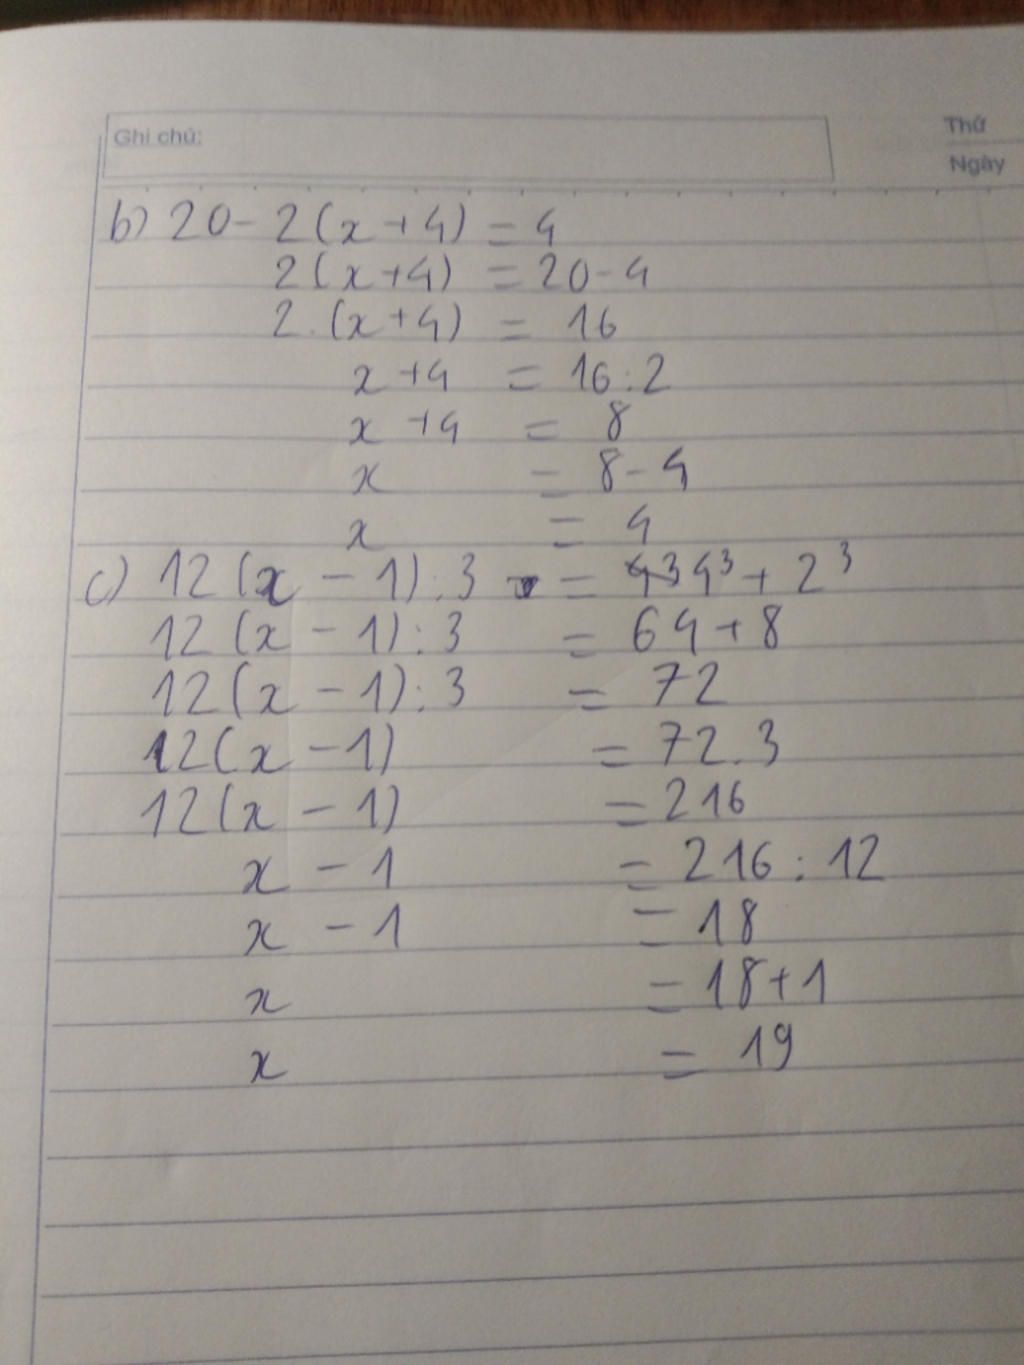 Ghi chú:
Thứ
Ngày
b) 20 - 2(x + 4) = 4
2(x+4) = 20 - 4
2.(x+4) = 16
x + 4 = 16 : 2
x + 4 = 8
x = 8 - 4
x = 4
c) 12(x - 1) : 3 = 4³ + 2³
12(x - 1) : 3 = 64 + 8
12(x - 1) : 3 = 72
12(x - 1) = 72.3
12(x - 1) = 216
x - 1 = 216 : 12
x - 1 = 18
x = 18 + 1
x = 19